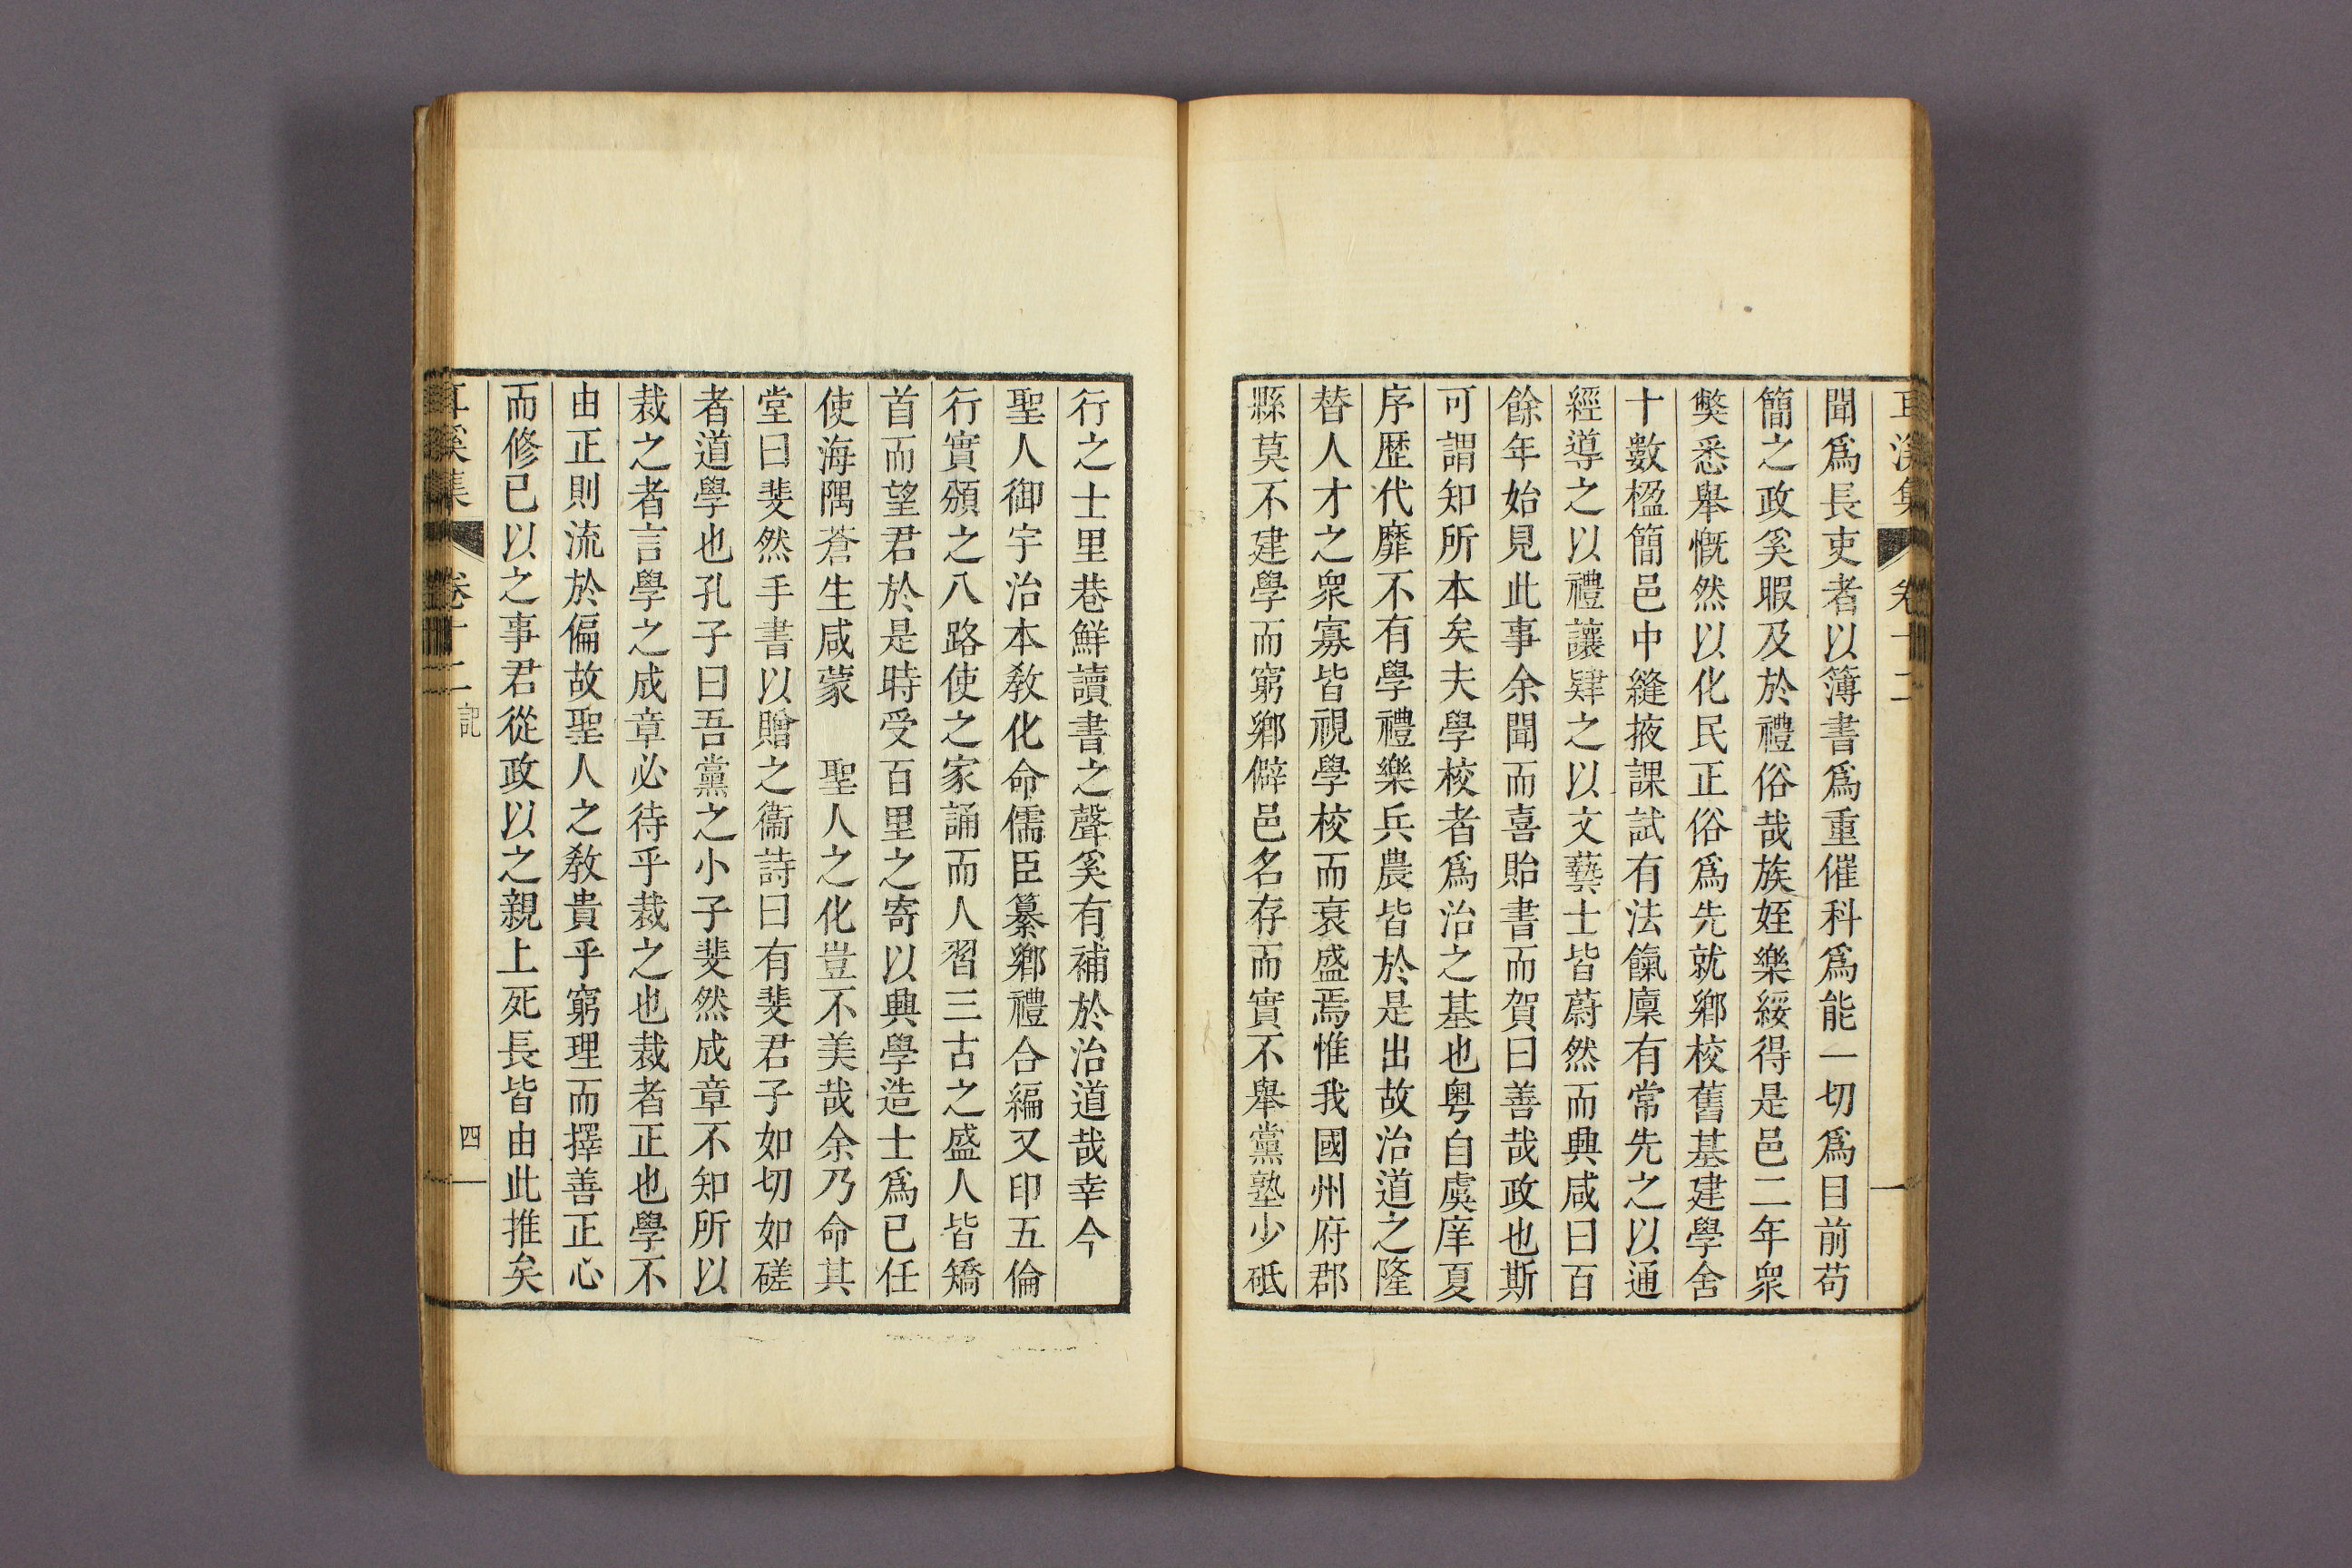 耳溪集 卷十二
聞爲長吏者以簿書爲重催科爲能一切爲目前苟
簡之政奚暇及於禮俗哉族姪樂綏得是邑二年衆
弊悉舉慨然以化民正俗爲先就鄕校舊基建學舍
十數楹簡邑中縫掖課試有法餼廩有常先之以通
經導之以禮讓肄之以文藝士皆蔚然而興咸曰百
餘年始見此事余聞而喜貽書而賀曰善哉政也斯
可謂知所本矣夫學校者爲治之基也粤自虞庠夏
序歷代靡不有學禮樂兵農皆於是出故治道之隆
替人才之衆寡皆視學校而衰盛焉惟我國州府郡
縣莫不建學而窮鄕僻邑名存而實不舉黨塾少砥
行之士里巷鮮讀書之聲奚有補於治道哉幸今
聖人御宇治本敎化命儒臣纂鄕禮合編又印五倫
行實頒之八路使之家誦而人習三古之盛人皆矯
首而望君於是時受百里之寄以興學造士爲已任
使海隅蒼生咸蒙 聖人之化豈不美哉余乃命其
堂曰斐然手書以贈之衞詩曰有斐君子如切如磋
者道學也孔子曰吾黨之小子斐然成章不知所以
裁之者言學之成章必待乎裁之也裁者正也學不
由正則流於偏故聖人之敎貴乎窮理而擇善正心
而修已以之事君從政以之親上死長皆由此推矣
耳溪集 卷十二 記 四